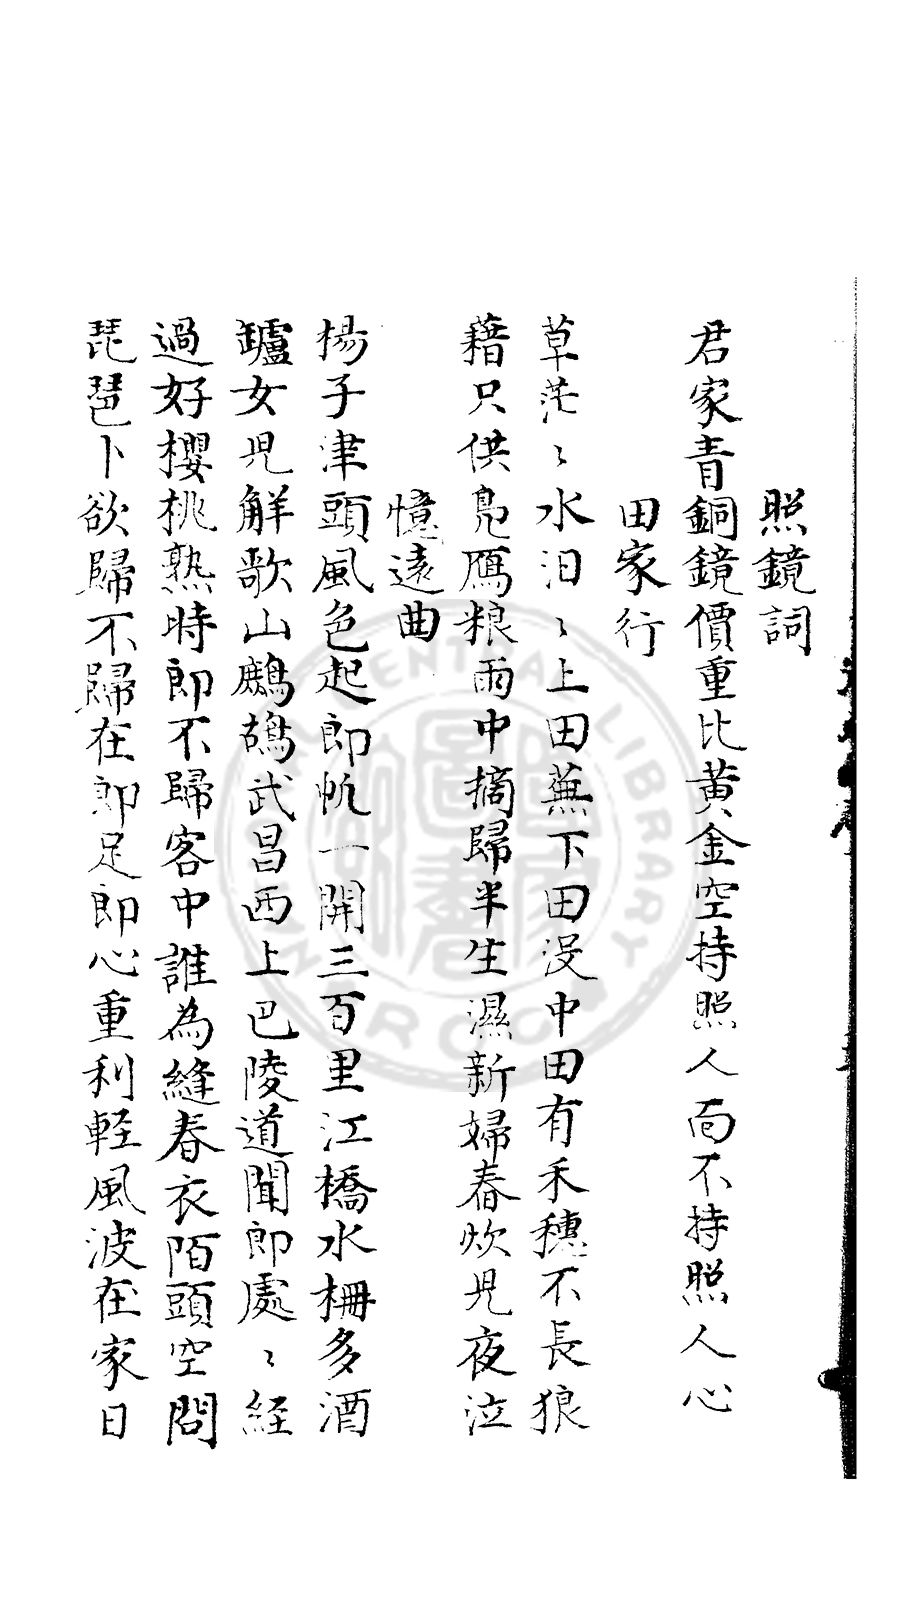 照鏡詞
君家青銅鏡價重比黃金空持照人面不持照人心
田家行
草茫〻水汩〻上田蕪下田沒中田有禾穗不長狼
藉只供鳧鴈粮雨中摘歸半生濕新婦舂炊兒夜泣
憶遠曲
楊子津頭風色起郎帆一開三百里江橋水柵多酒
罏女兒觧歌山鷓鴣武昌西上巴陵道聞郎處〻經
過好櫻桃熟時郎不歸客中誰為縫春衣陌頭空問
琵琶卜欲歸不歸在郎足郎心重利輕風波在家日
NATIONAL CENTRAL LIBRARY
國家圖書館